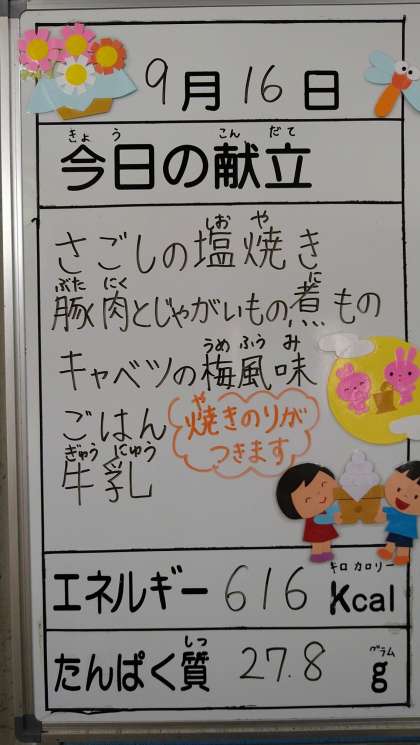 9月16日
きょう こんだて
今日の献立
しお や
さごしの塩焼き
ぶた にく に
豚肉とじゃがいもの煮もの
うめ ふう み
キャベツの梅風味
ごはん
や
焼きのりが
つきます
ぎゅう にゅう
牛乳
キロ カロリー
エネルギー 616 Kcal
しつ グラム
たんぱく質 27.8 g